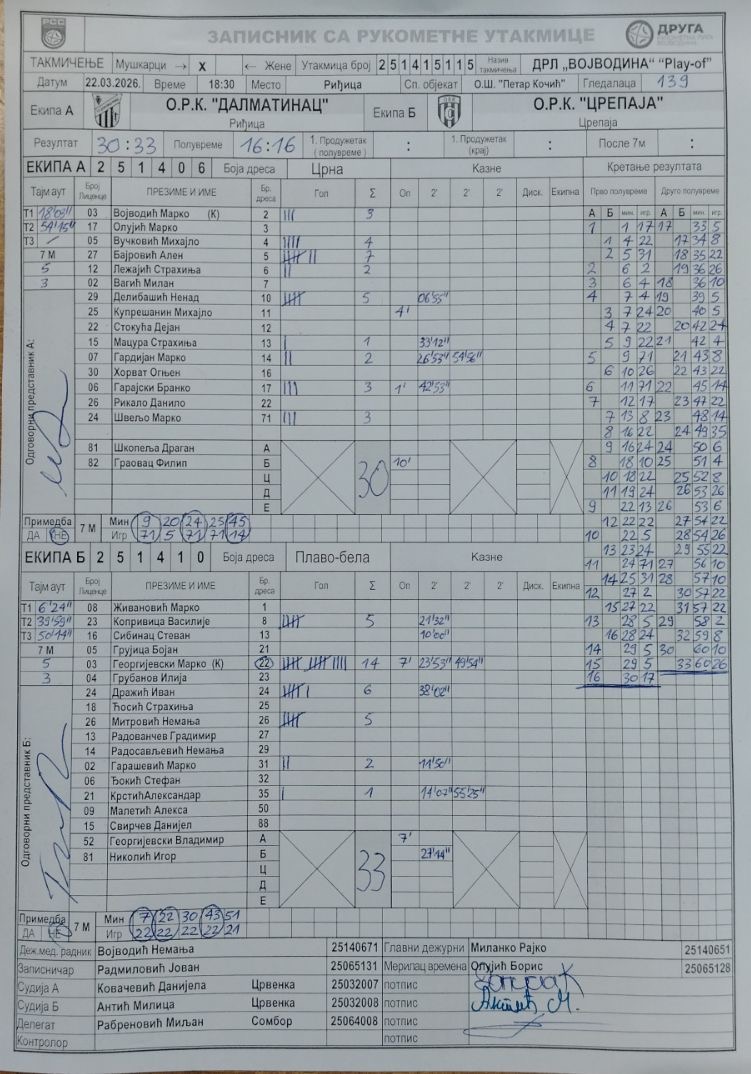 ЗАПИСНИК СА РУКОМЕТНЕ УТАКМИЦЕ
ДРУГА
ТАКМИЧЕЊЕ Мушкарци → x ← Жене Утакмица број 2 5 1 4 1 5 1 1 5 Назив такмичења ДРЛ „ВОЈВОДИНА“ “Play-of”
Датум 22.03.2026. Време 18:30 Место Риђица Сп. објекат О.Ш. "Петар Кочић" Гледалаца 139
Екипа А О.Р.К. "ДАЛМАТИНАЦ" Риђица Екипа Б О.Р.К. "ЦРЕПАЈА" Црепаја
Резултат 30:33 Полувреме 16:16 1. Продужетак (полувреме) : 1. Продужетак (крај) : После 7м :
ЕКИПА А 2 5 1 4 0 6 Боја дреса Црна Казне Кретање резултата
Тајм аут Број Лиценце ПРЕЗИМЕ И ИМЕ Бр. дреса Гол Σ Оп 2' 2' 2' Диск. Екипна Прво полувреме Друго полувреме
А Б мин. игр. А Б мин. игр.
Т1 18'09" 03 Војводић Марко (К) 2 III 3
Т2 54'15" 17 Олујић Марко 3
Т3 / 05 Вучковић Михајло 4 IIII 4
7 М 27 Бајровић Ален 5 IIIII II 7
5 12 Лежајић Страхиња 6 II 2
3 02 Вагић Милан 7
29 Делибашић Ненад 10 IIIII 5 06'55"
25 Купрешанин Михајло 11 4'
22 Стокућа Дејан 12
15 Мацура Страхиња 13 I 1 33'12"
07 Гардијан Марко 14 II 2 26'53" 54'56"
30 Хорват Огњен 16
06 Гарајски Бранко 17 III 3 1' 42'53"
26 Рикало Данило 22
24 Швељо Марко 71 III 3
81 Шкопеља Драган А
82 Граовац Филип Б 10'
Ц
Д
Е
30
Одговорни представник А:
Примедба ДА НЕ 7 М Мин 9 20 24 25 45
Игр 71 5 71 71 14
1 1 17 17 33 5
1 4 22 17 34 8
2 5 31 18 35 22
2 6 2 19 36 26
3 6 4 18 36 10
4 7 4 19 39 5
3 7 24 20 40 5
4 7 22 20 42 24
5 9 22 21 42 4
5 9 71 21 43 8
6 10 26 22 43 22
6 11 71 22 45 14
7 12 17 23 47 22
7 13 8 23 48 14
8 16 22 24 49 35
9 16 24 24 50 6
8 18 10 25 51 4
10 18 22 25 52 8
11 19 24 26 53 26
9 22 13 26 53 6
12 22 22 27 54 22
10 22 5 28 54 26
13 23 24 29 55 22
11 24 71 27 56 10
14 25 31 28 57 10
12 27 2 30 57 22
15 27 22 31 57 22
13 28 5 29 58 2
16 28 24 32 59 8
14 29 5 30 60 10
15 29 5 33 60 26
16 30 17
ЕКИПА Б 2 5 1 4 1 0 Боја дреса Плаво-бела Казне
Тајм аут Број Лиценце ПРЕЗИМЕ И ИМЕ Бр. дреса Гол Σ Оп 2' 2' 2' Диск. Екипна
Т1 6'24" 08 Живановић Марко 1
Т2 39'59" 23 Копривица Василије 8 IIIII 5 21'32"
Т3 50'14" 16 Сибинац Стеван 13 10'00"
7 М 05 Грујица Бојан 21
5 03 Георгијевски Марко (К) 22 IIIII IIIII IIII 14 7' 23'53" 49'54"
3 04 Грубанов Илија 23
24 Дражић Иван 24 IIIII I 6 38'02"
18 Ћосић Страхиња 25
26 Митровић Немања 26 IIIII 5
13 Радованчев Градимир 27
14 Радосављевић Немања 29
02 Гарашевић Марко 31 II 2 11'50"
06 Ђокић Стефан 32
21 КрстићАлександар 35 I 1 14'07" 55'25"
09 Малетић Алекса 50
15 Свирчев Данијел 88
52 Георгијевски Владимир А 7'
81 Николић Игор Б 27'14"
Ц
Д
Е
33
Одговорни представник Б:
Примедба ДА НЕ 7 М Мин 7 22 30 43 51
Игр 22 22 22 22 21
Деж.мед. радник Војводић Немања 25140671 Главни дежурни Миланко Рајко 25140651
Записничар Радмиловић Јован 25065131 Мерилац времена Олујић Борис 25065128
Судија А Ковачевић Данијела Црвенка 25032007 потпис
Судија Б Антић Милица Црвенка 25032008 потпис Антић М.
Делегат Рабреновић Миљан Сомбор 25064008 потпис
Контролор потпис